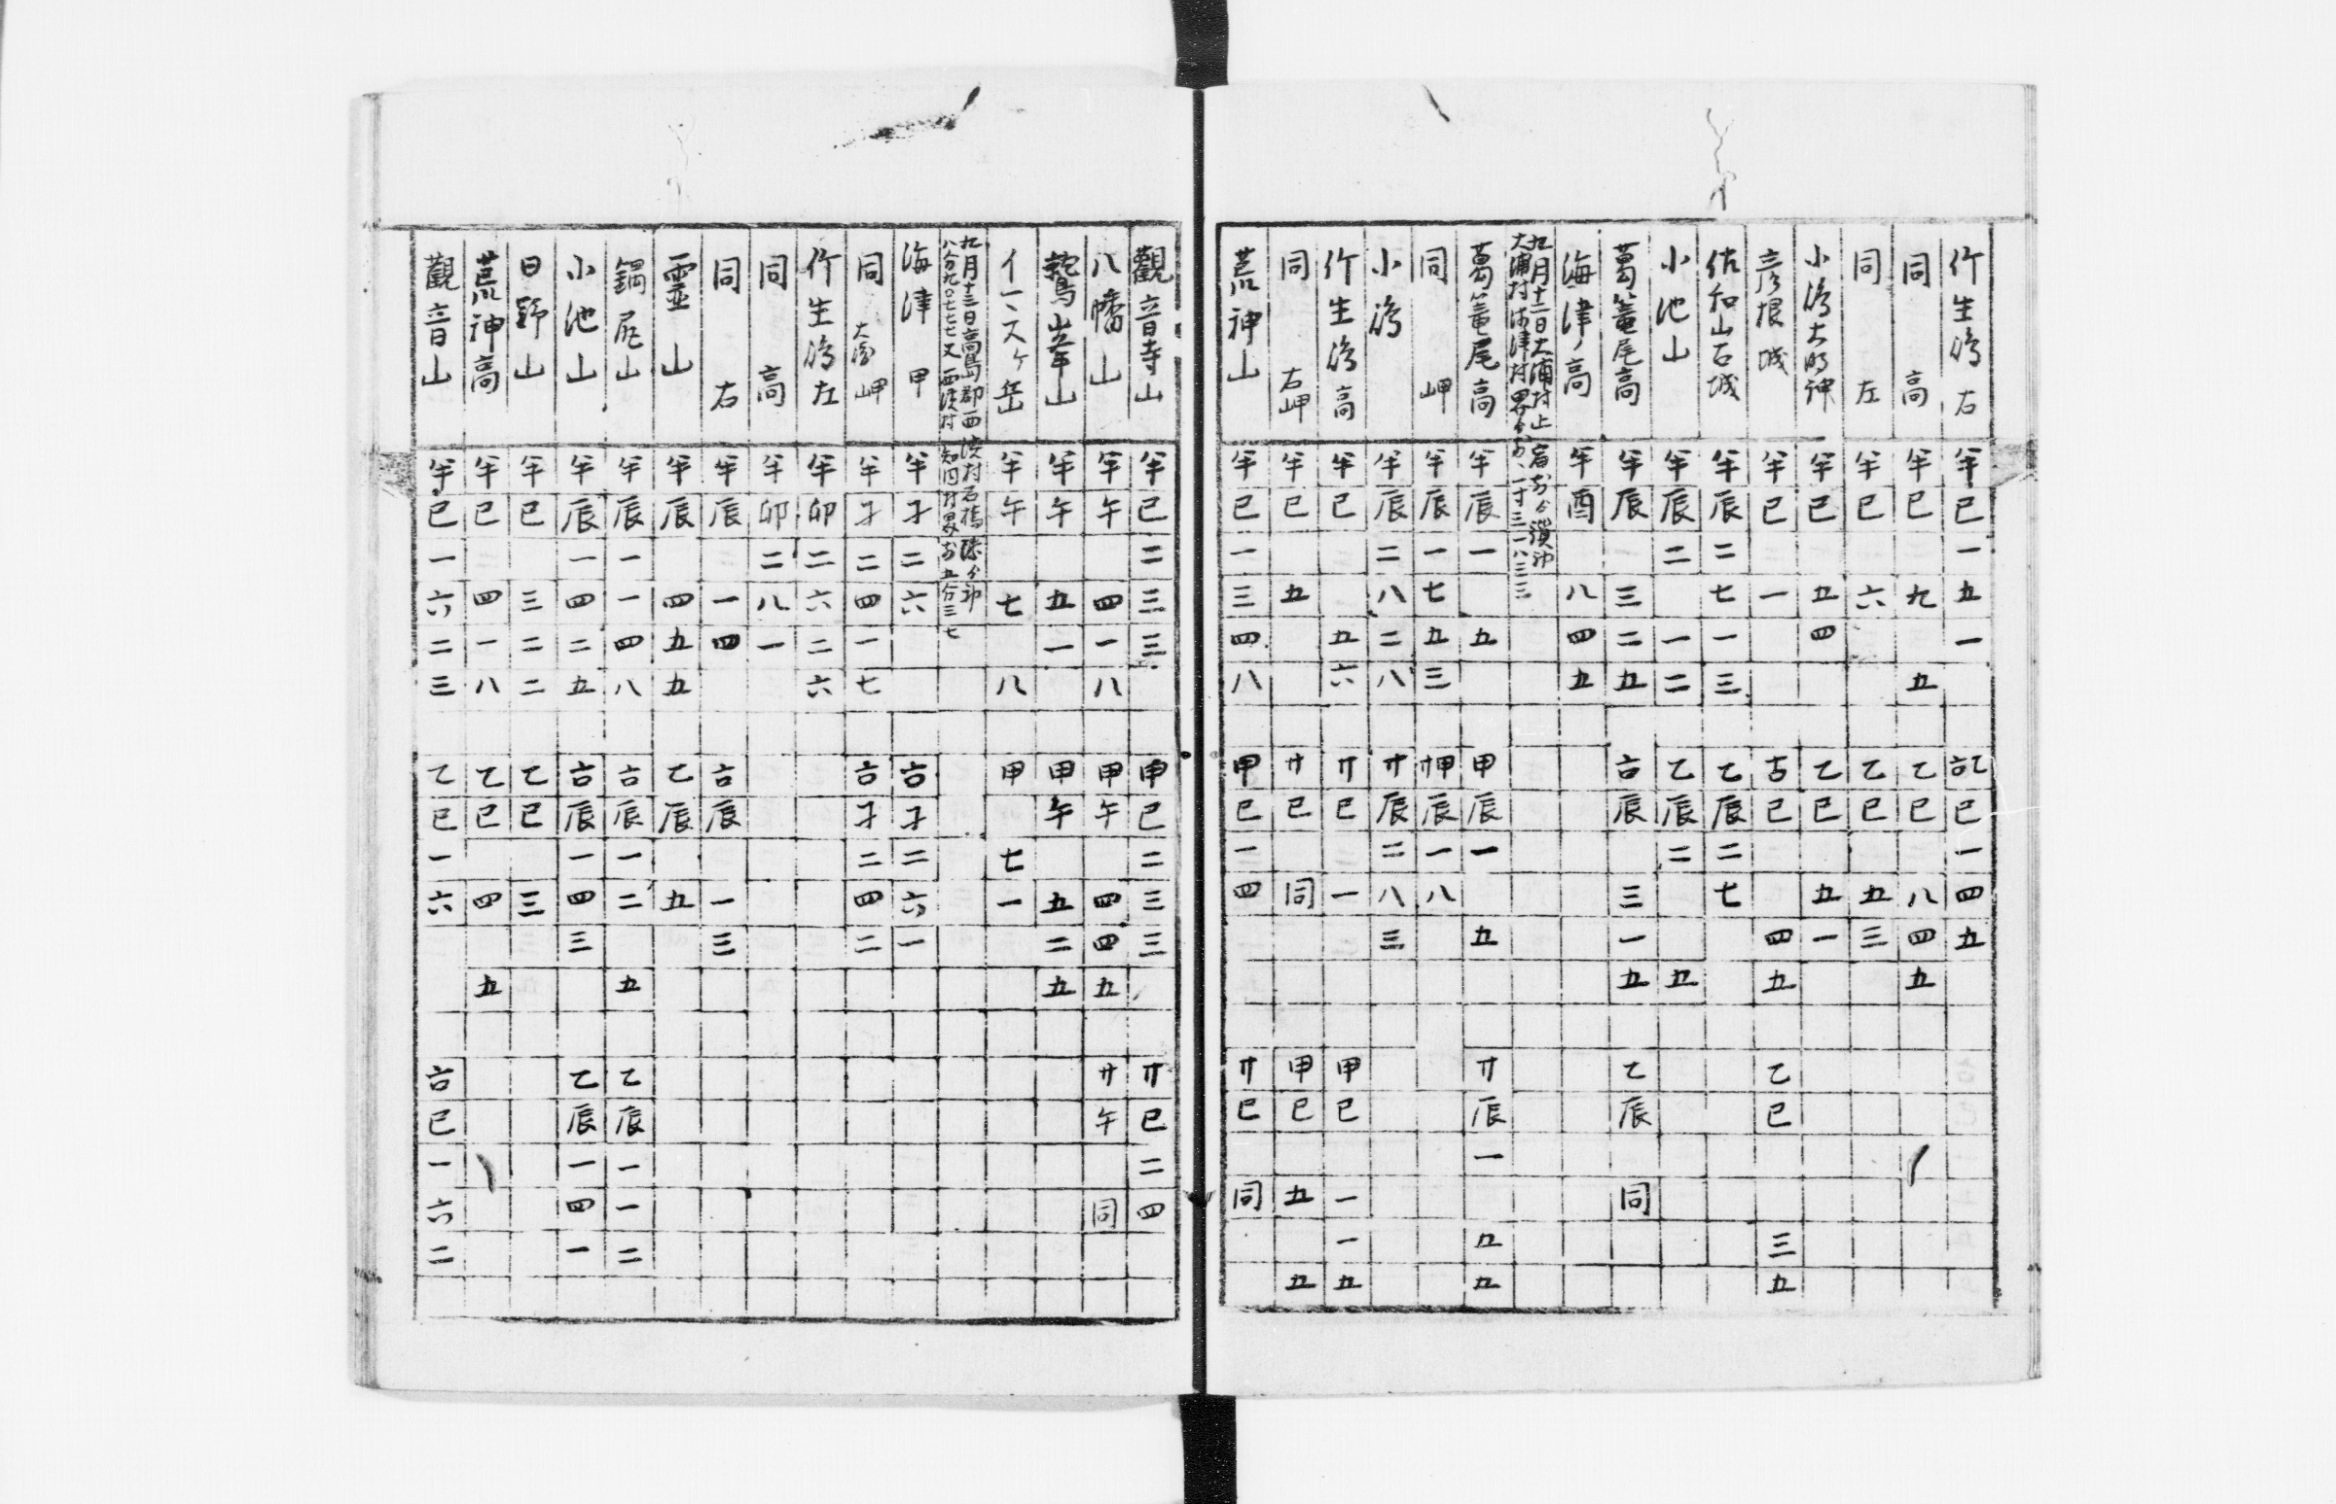 竹生嶋 右 半 巳 一 五 一 乙 巳 一 四 五
同 高 半 巳 九 五 乙 巳 八 四 五
同 左 半 巳 六 乙 巳 五 三
小嶋大明神 半 巳 五 四 乙 巳 五 一
彦根城 半 巳 一 古 巳 四 五 乙 巳 三 五
佐和山古城 半 辰 二 七 一 三 乙 辰 二 七
小池山 半 辰 二 一 二 乙 辰 二 五
葛篭尾高 半 辰 三 二 五 古 辰 三 一 五 乙 辰 同
海津ノ高 半 酉 八 四 五
九月十二日大浦村止宿
大浦村海津村界 一寸三一八三三
葛篭尾高 半 辰 一 五 甲 辰 一 五 廾 辰 一 五 五
同 岬 半 辰 一 七 五 三 廾甲 辰 一 八
小嶋 半 辰 二 八 二 八 廾 辰 二 八 三
竹生嶋高 半 巳 五 六 廾 巳 一 甲 巳 一 一 五
同 右岬 半 巳 五 廾 巳 同 甲 巳 五 五
荒神山 半 巳 一 三 四 八 甲 巳 一 四 廾 巳 同
觀音寺山 半 巳 二 三 三 甲 巳 二 三 三 廾 巳 二 四
八幡山 半 午 四 一 八 甲 午 四 四 五 廾 午 同
鷲山峯山 半 午 五 一 甲 午 五 二 五
イヽヌケ岳 半 午 七 八 甲 七 一
九月十三日高島郡西濱村石橋
八分九〇七七又西濱村知内村界 五分三七
海津 甲 半 子 二 六 古 子 二 六 一
同 大崎岬 半 子 二 四 一 七 古 子 二 四 二
竹生嶋左 半 卯 二 六 二 六
同 高 半 卯 二 八 一
同 右 半 辰 一 四 古 辰 一 三
靈山 半 辰 四 五 五 乙 辰 五
鍋尻山 半 辰 一 一 四 八 古 辰 一 二 五 乙 辰 一 一 二
小池山 半 辰 一 四 二 五 古 辰 一 四 三 乙 辰 一 四 一
日野山 半 巳 三 二 二 乙 巳 三
荒神高 半 巳 四 一 八 乙 巳 四 五
觀音山 半 巳 一 六 二 三 乙 巳 一 六 古 巳 一 六 二